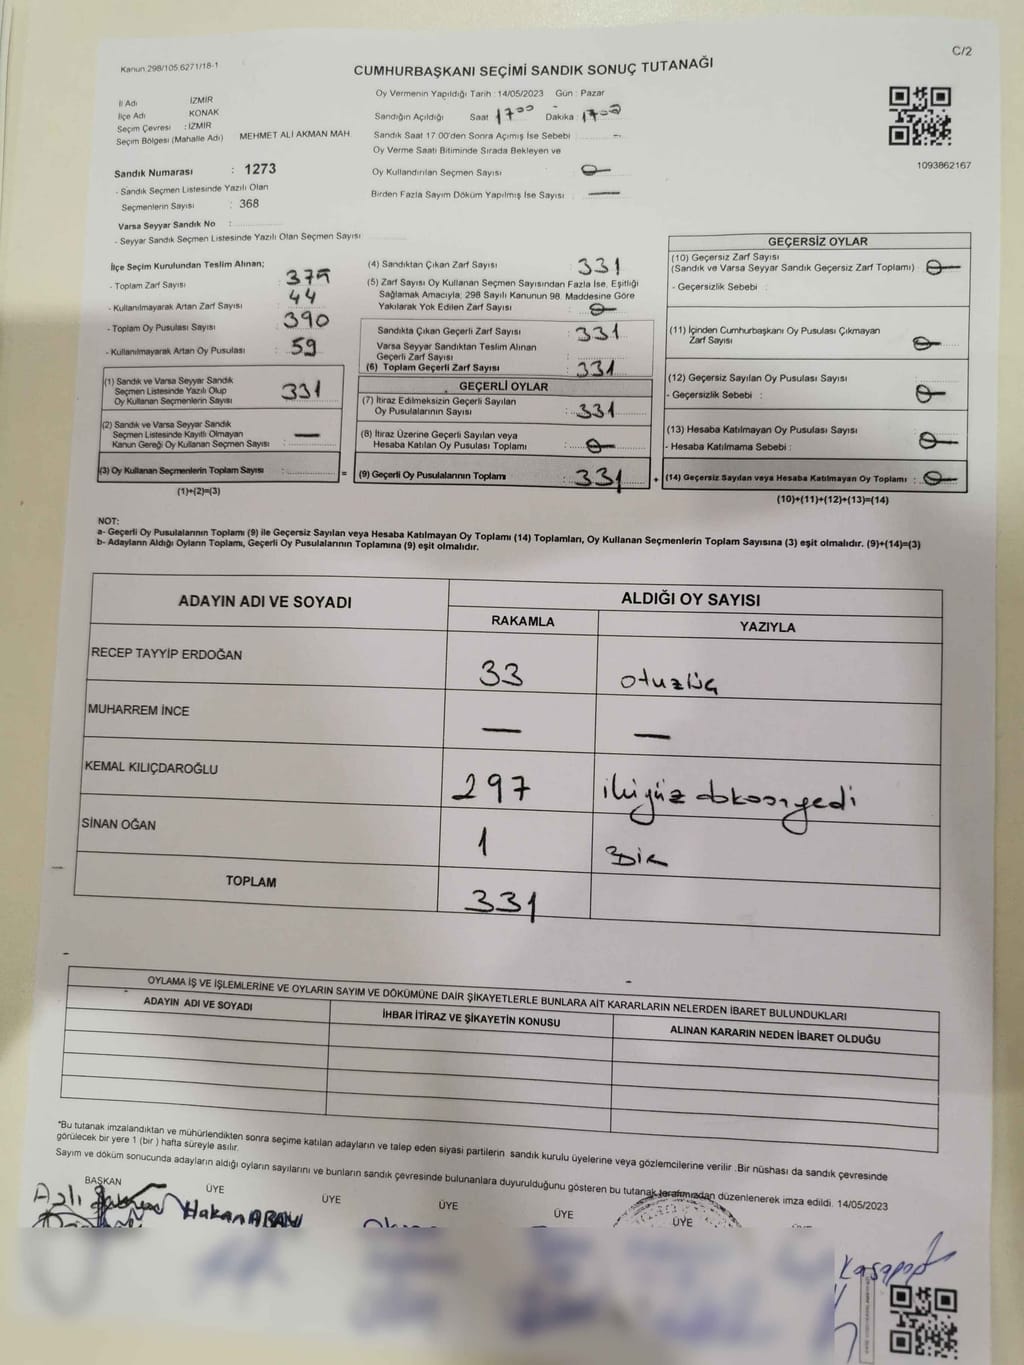 C/2
Kanun 298/105.6271/18-1
CUMHURBAŞKANI SEÇİMİ SANDIK SONUÇ TUTANAĞI
İl Adı İZMİR
İlçe Adı KONAK
Seçim Çevresi : İZMİR
Seçim Bölgesi (Mahalle Adı) MEHMET ALİ AKMAN MAH.
Sandık Numarası : 1273
- Sandık Seçmen Listesinde Yazılı Olan
Seçmenlerin Sayısı : 368
Varsa Seyyar Sandık No :
- Seyyar Sandık Seçmen Listesinde Yazılı Olan Seçmen Sayısı
Oy Vermenin Yapıldığı Tarih : 14/05/2023 Gün : Pazar
Sandığın Açıldığı Saat 17 00 Dakika : 17 00
Sandık Saat 17 00'den Sonra Açımış İse Sebebi : —
Oy Verme Saati Bitiminde Sırada Bekleyen ve
Oy Kullandırılan Seçmen Sayısı
Birden Fazla Sayım Döküm Yapılmış İse Sayısı : —
1093862167
İlçe Seçim Kurulundan Teslim Alınan;
- Toplam Zarf Sayısı : 375
- Kullanılmayarak Artan Zarf Sayısı : 44
- Toplam Oy Pusulası Sayısı : 390
- Kullanılmayarak Artan Oy Pusulası : 59
(1) Sandık ve Varsa Seyyar Sandık
Seçmen Listesinde Yazılı Olup
Oy Kullanan Seçmenlerin Sayısı : 331
(2) Sandık ve Varsa Seyyar Sandık
Seçmen Listesinde Kayıtlı Olmayan
Kanun Gereği Oy Kullanan Seçmen Sayısı : —
(3) Oy Kullanan Seçmenlerin Toplam Sayısı :
(1)+(2)=(3)
=
(4) Sandıktan Çıkan Zarf Sayısı : 331
(5) Zarf Sayısı Oy Kullanan Seçmen Sayısından Fazla İse, Eşitliği
Sağlamak Amacıyla; 298 Sayılı Kanunun 98. Maddesine Göre
Yakılarak Yok Edilen Zarf Sayısı :
Sandıkta Çıkan Geçerli Zarf Sayısı : 331
Varsa Seyyar Sandıktan Teslim Alınan
Geçerli Zarf Sayısı :
(6) Toplam Geçerli Zarf Sayısı : 331
GEÇERLİ OYLAR
(7) İtiraz Edilmeksizin Geçerli Sayılan
Oy Pusulalarının Sayısı : 331
(8) İtiraz Üzerine Geçerli Sayılan veya
Hesaba Katılan Oy Pusulası Toplamı :
(9) Geçerli Oy Pusulalarının Toplamı : 331
+
GEÇERSİZ OYLAR
(10) Geçersiz Zarf Sayısı
(Sandık ve Varsa Seyyar Sandık Geçersiz Zarf Toplamı) :
- Geçersizlik Sebebi :
(11) İçinden Cumhurbaşkanı Oy Pusulası Çıkmayan
Zarf Sayısı
(12) Geçersiz Sayılan Oy Pusulası Sayısı :
- Geçersizlik Sebebi :
(13) Hesaba Katılmayan Oy Pusulası Sayısı :
- Hesaba Katılmama Sebebi :
(14) Geçersiz Sayılan veya Hesaba Katılmayan Oy Toplamı :
(10)+(11)+(12)+(13)=(14)
NOT:
a- Geçerli Oy Pusulalarının Toplamı (9) ile Geçersiz Sayılan veya Hesaba Katılmayan Oy Toplamı (14) Toplamları, Oy Kullanan Seçmenlerin Toplam Sayısına (3) eşit olmalıdır. (9)+(14)=(3)
b- Adayların Aldığı Oyların Toplamı, Geçerli Oy Pusulalarının Toplamına (9) eşit olmalıdır.
ADAYIN ADI VE SOYADI
ALDIĞI OY SAYISI
RAKAMLA YAZIYLA
RECEP TAYYİP ERDOĞAN 33 otuzüç
MUHARREM İNCE — —
KEMAL KILIÇDAROĞLU 297 ikiyüz doksanyedi
SİNAN OĞAN 1 Bir
TOPLAM 331
OYLAMA İŞ VE İŞLEMLERİNE VE OYLARIN SAYIM VE DÖKÜMÜNE DAİR ŞİKAYETLERLE BUNLARA AİT KARARLARIN NELERDEN İBARET BULUNDUKLARI
ADAYIN ADI VE SOYADI İHBAR İTİRAZ VE ŞİKAYETİN KONUSU ALINAN KARARIN NEDEN İBARET OLDUĞU
*Bu tutanak imzalandıktan ve mühürlendikten sonra seçime katılan adayların ve talep eden siyasi partilerin sandık kurulu üyelerine veya gözlemcilerine verilir .Bir nüshası da sandık çevresinde
görülecek bir yere 1 (bir ) hafta süreyle asılır.
Sayım ve döküm sonucunda adayların aldığı oyların sayılarını ve bunların sandık çevresinde bulunanlara duyurulduğunu gösteren bu tutanak tarafımızdan düzenlenerek imza edildi. 14/05/2023
BAŞKAN ÜYE ÜYE ÜYE ÜYE ÜYE
Aslı
Hakan